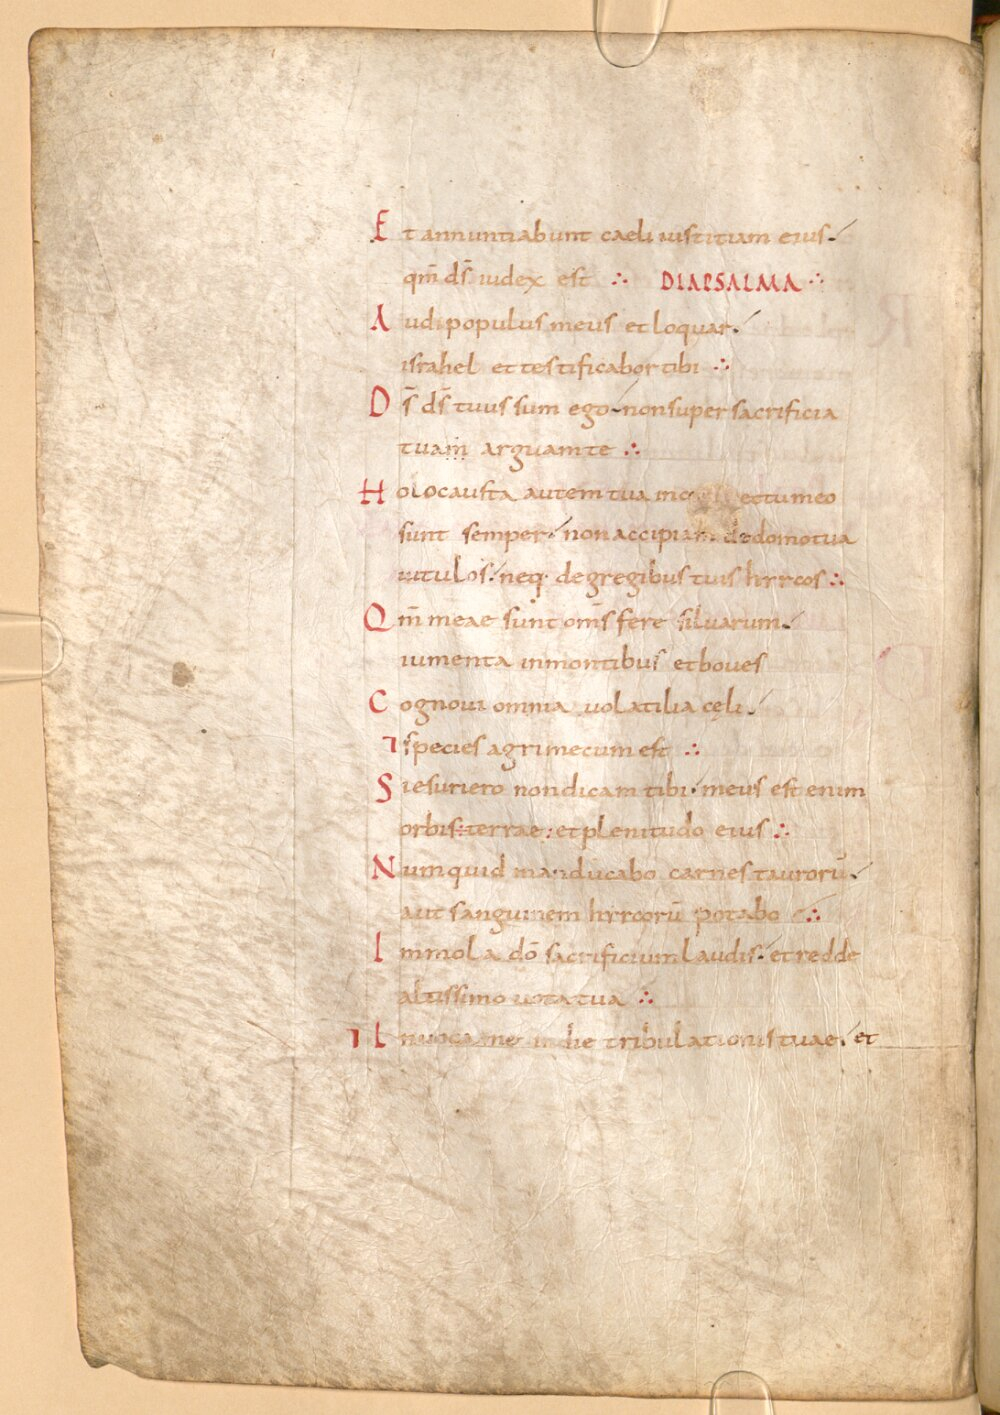 Et annuntiabunt caeli iustitiam eius
qm̄ ds̄ iudex est ∴ DIAPSALMA ∴
Audi populus meus et loquar
israhel et testificabor tibi ∴
Ds̄ ds̄ tuus sum ego non super sacrificia
tuam arguam te ∴
Holocausta autem tua in ectu meo
sunt semper non accipiam de domo tua
uitulos neq· de gregibus tuis hircos ∴
Qm̄ meae sunt om̄s fere siluarum
iumenta in montibus et boues
Cognoui omnia uolatilia cęli
⁊ species agri mecum est ∴
Si esuriero non dicam tibi meus est enim
orbis terrae et plenitudo eius ∴
Numquid manducabo carnes taurorū
aut sanguinem hircorū potabo ∴
Immola dō sacrificium laudis et redde
altissimo uota tua ∴
⁊ Inuoca me in die tribulationis tuae et